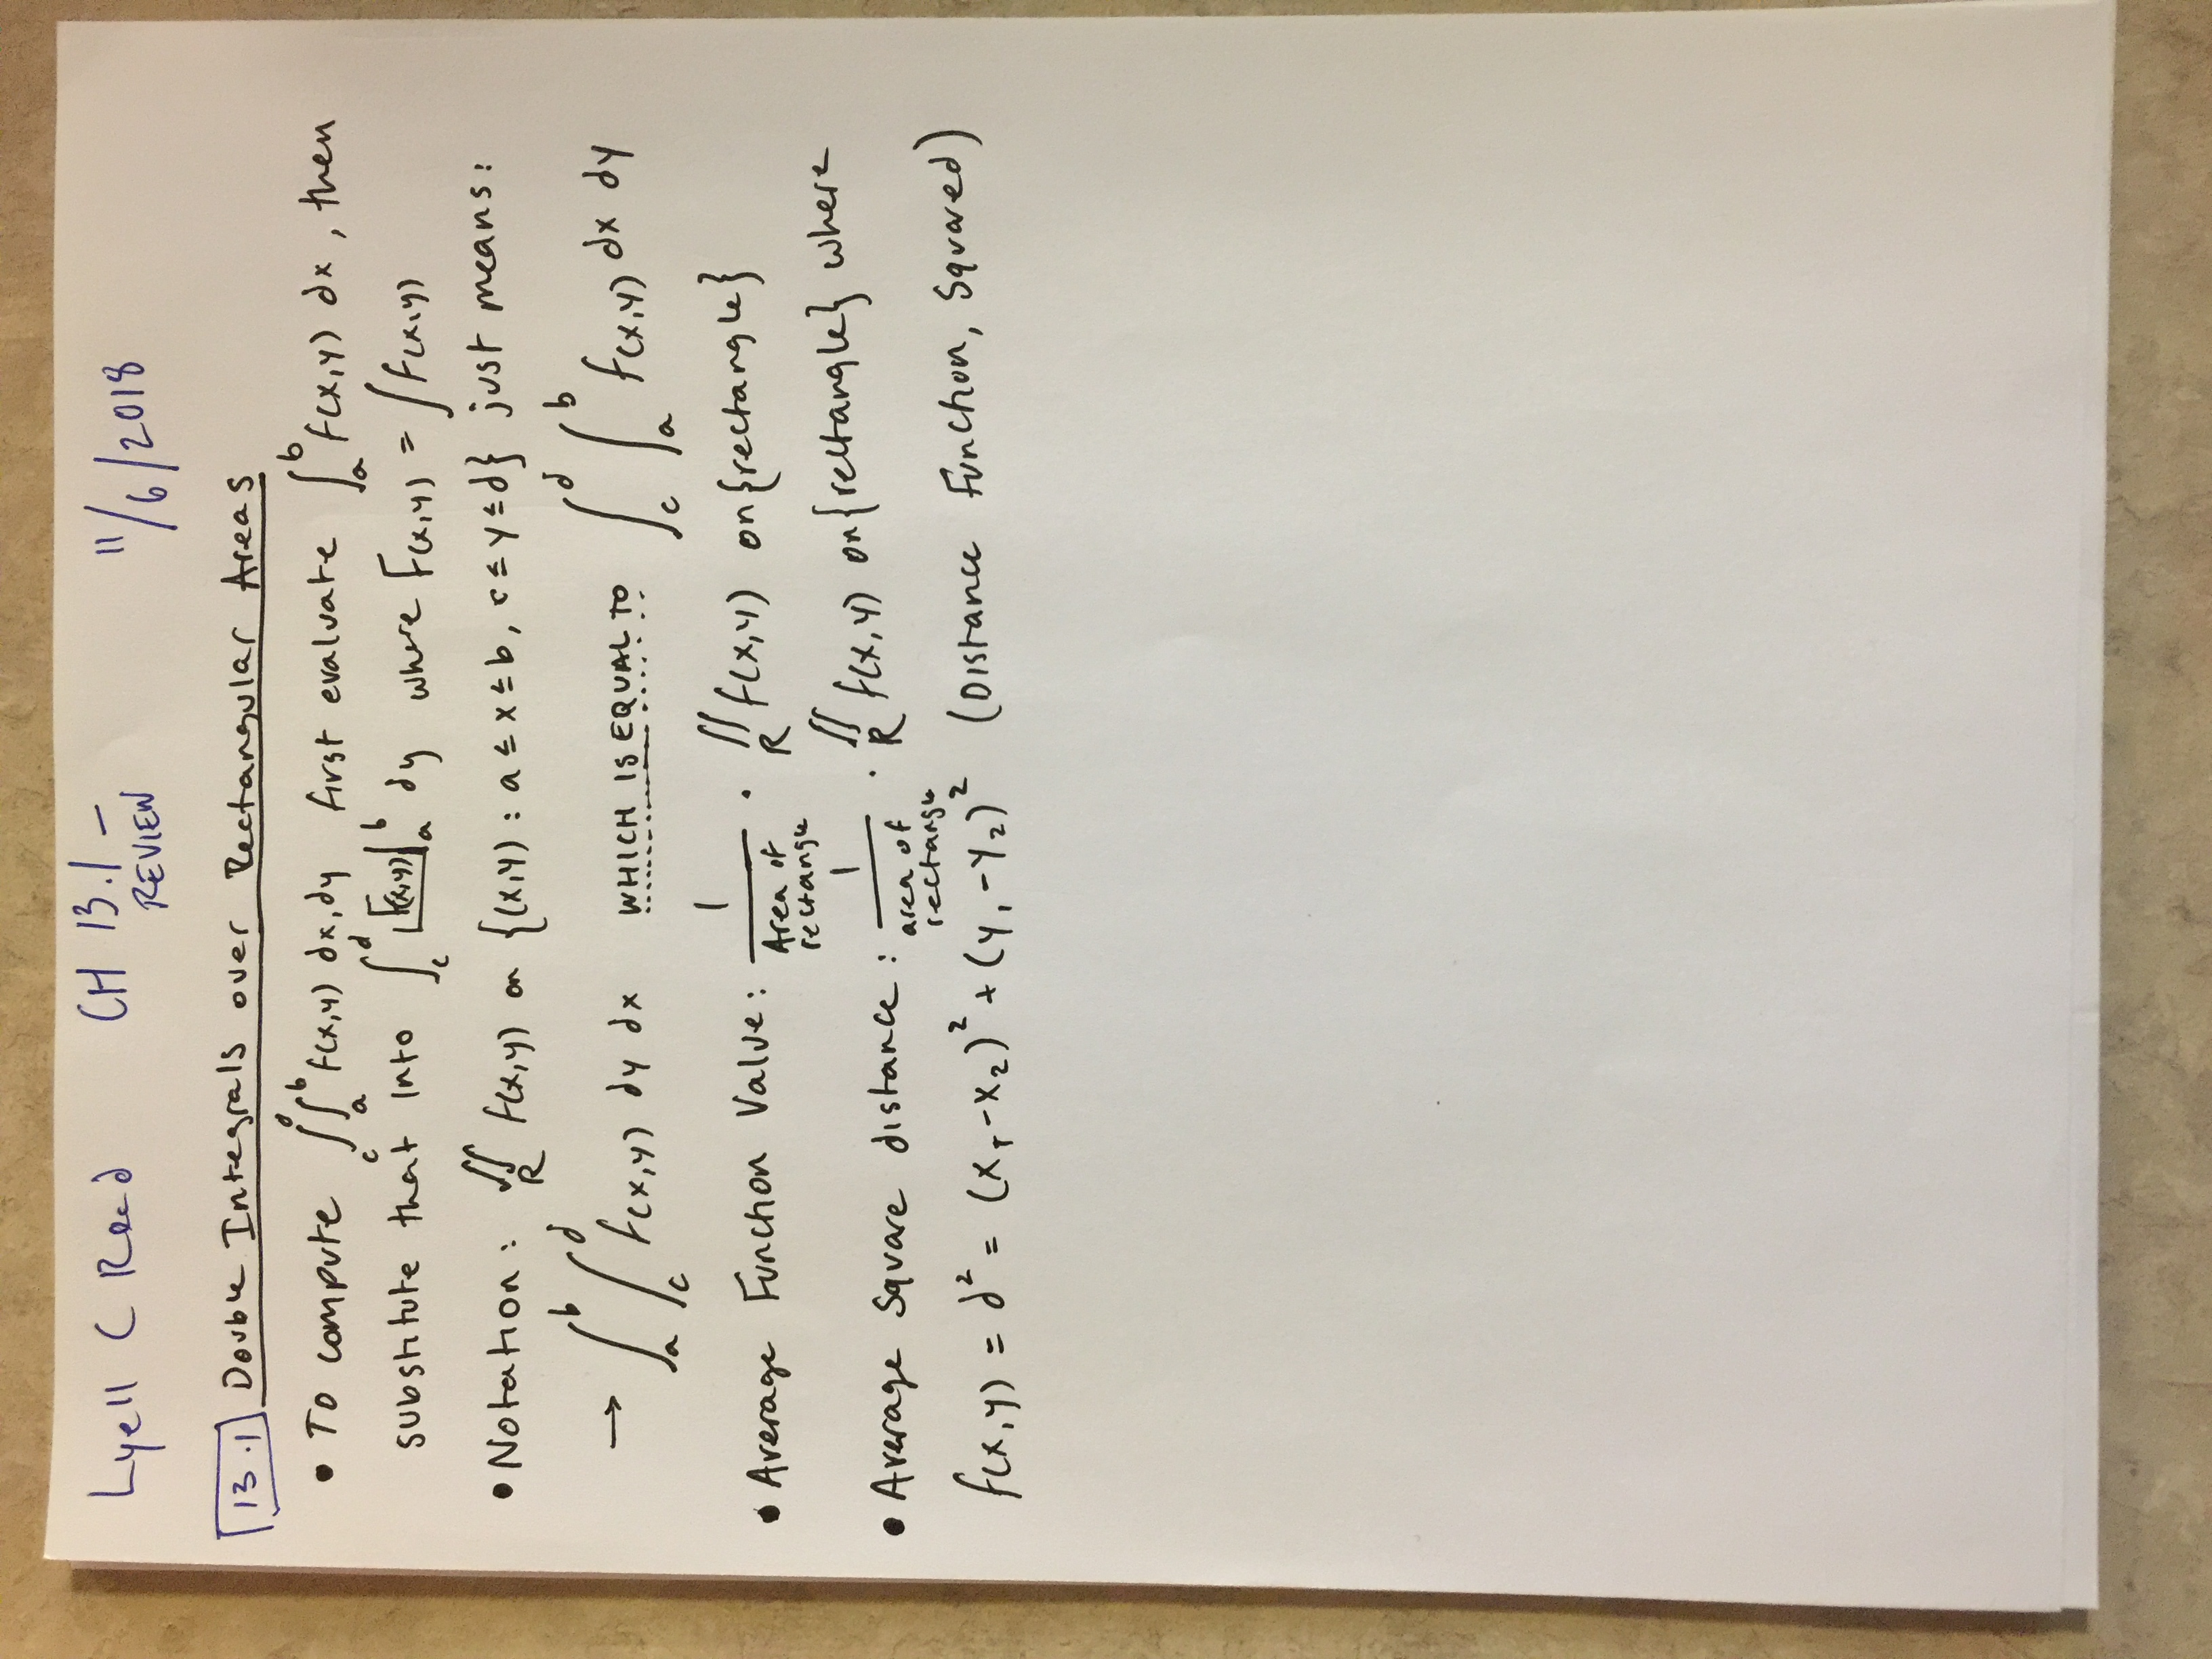 Lyell C Read CH 13.1 – REVIEW 11/6/2018
13.1 Double Integrals over Rectangular Areas
• To compute ∫_c^d ∫_a^b f(x,y) dx, dy first evaluate ∫_a^b f(x,y) dx, then
substitute that into ∫_c^d [F(x,y)]|_a^b dy where F(x,y) = ∫f(x,y)
• Notation: ∬_R f(x,y) on {(x,y) : a ≤ x ≤ b, c ≤ y ≤ d} just means:
→ ∫_a^b ∫_c^d f(x,y) dy dx WHICH IS EQUAL TO ∫_c^d ∫_a^b f(x,y) dx dy
• Average Function Value: 1/(Area of rectangle) · ∬_R f(x,y) on {rectangle}
• Average Square distance: 1/(area of rectangle) · ∬_R f(x,y) on {rectangle} where
f(x,y) = d² = (x₁-x₂)² + (y₁-y₂)² (Distance Function, Squared)